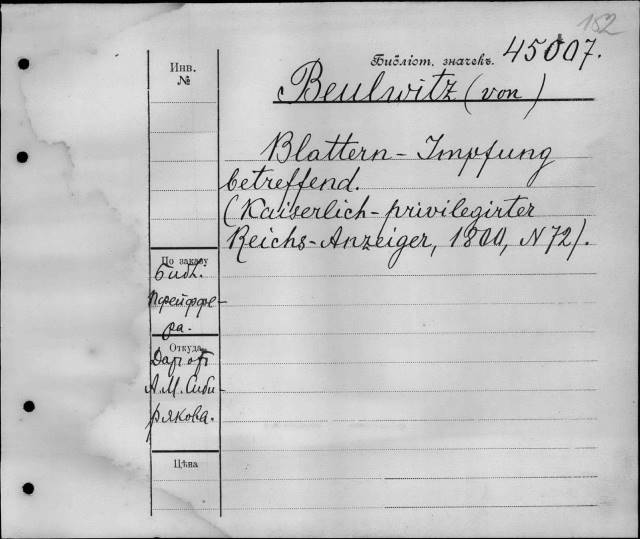 152
Библіот. значекъ. 45007.
Инв.
№
Beulwitz (von)
Blattern-Impfung
betreffend.
(Kaiserlich-privilegirter
Reichs-Anzeiger, 1800, N 72).
По заказу
Библ.
Пфейффе-
ра.
Откуда
Дар от
А.М. Сиби-
рякова.
Цѣна